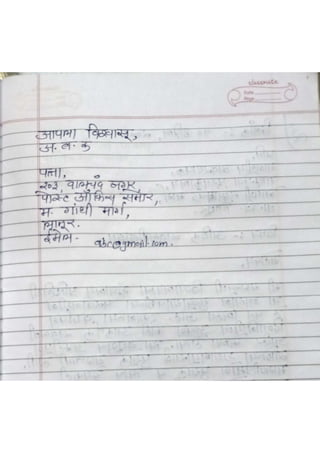 classmate
Date
Page
आपला विश्वासू,
अ. ब. क
पत्ता,
२०३, नगर,
पोस्ट ऑफिस समोर,
म. गांधी मार्ग,
लातूर.
ईमेल- abc@gmail.com.